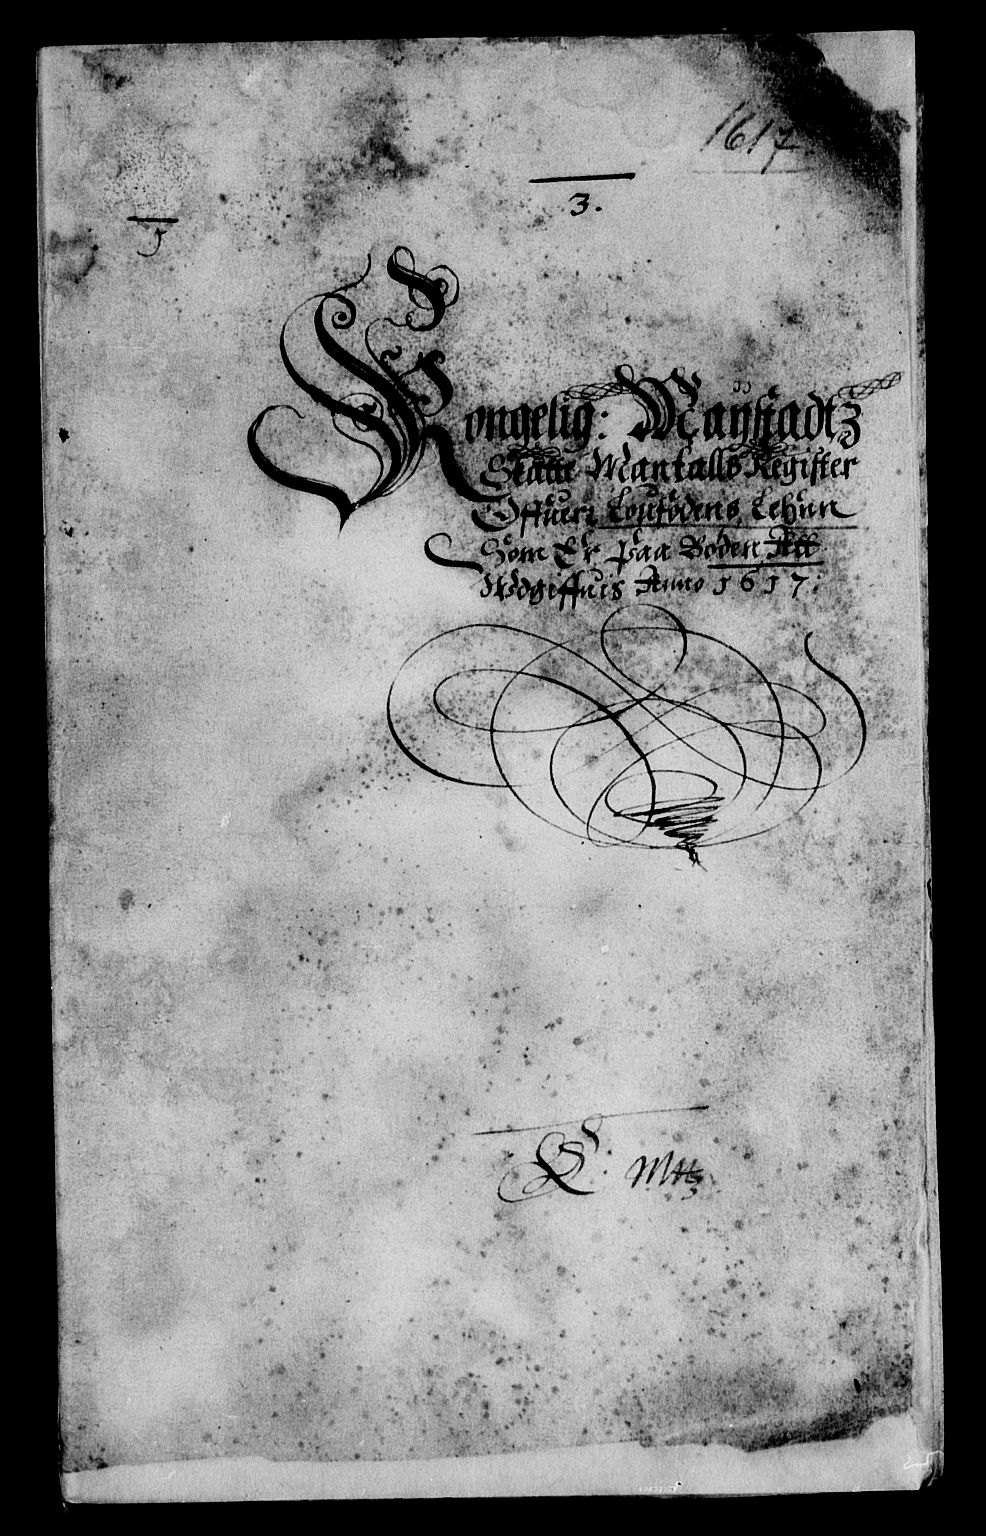 1617.
3.
1
Kongelig: Mayestadtz
Skatte Mantalls Register
Offuer Loufodens, Lehnn
Som Er paa Boden Aff
Wdgiffuis Anno 1617: